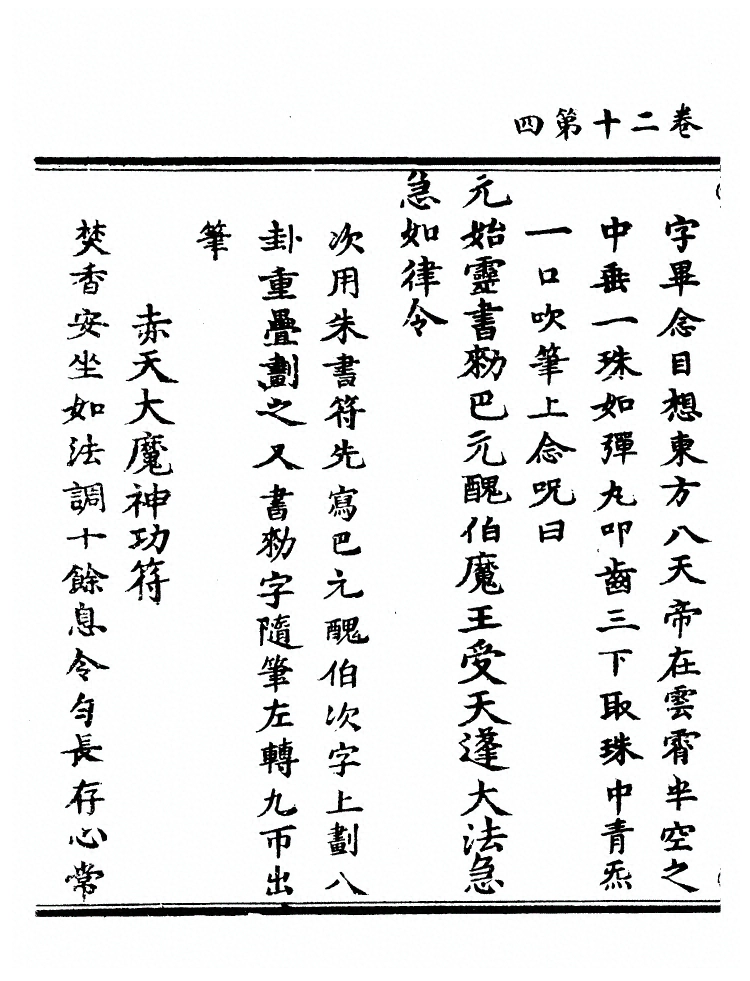 卷二十第四
字畢念目想東方八天帝在雲霄半空之
中垂一珠如彈丸叩齒三下取珠中青炁
一口吹筆上念呪曰
元始靈書勑巴元醜伯魔王受天蓬大法急
急如律令
次用朱書符先寫巴元醜伯次字上劃八
卦重疊劃之又書勑字隨筆左轉九帀出
筆
赤天大魔神功符
焚香安坐如法調十餘息令勻長存心常